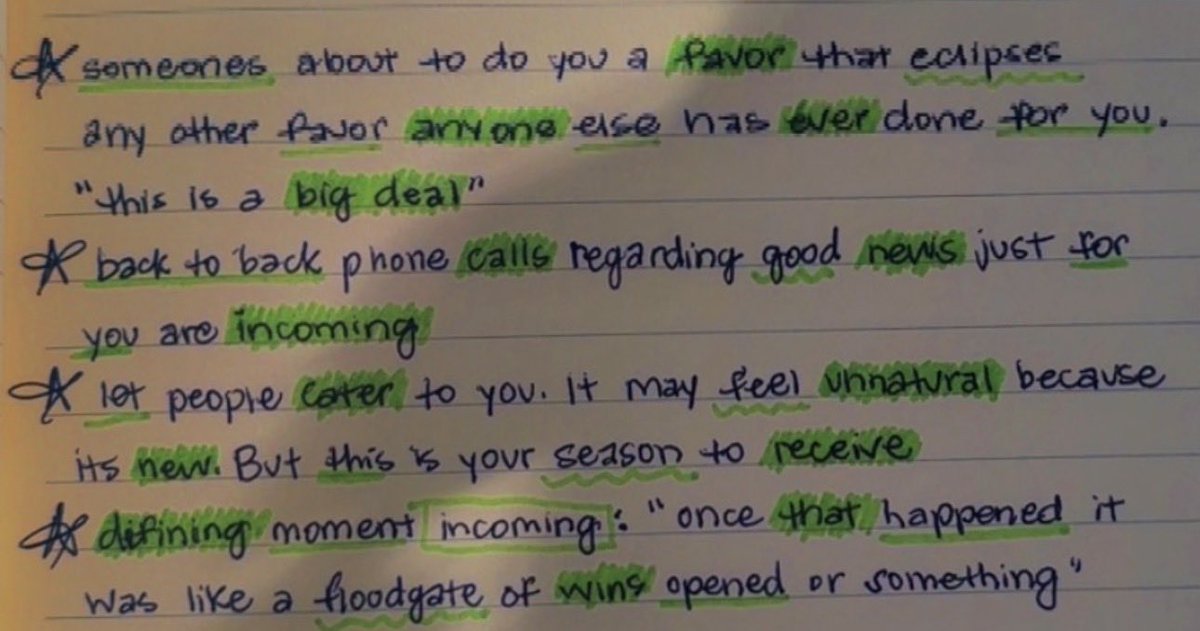 ☆ someones about to do you a favor that eclipses
any other favor anyone else has ever done for you.
"this is a big deal"
☆ back to back phone calls regarding good news just for
you are incoming
☆ let people cater to you. It may feel unnatural because
its new. But this is your season to receive
☆ difining moment incoming: "once that happened it
was like a floodgate of wins opened or something"